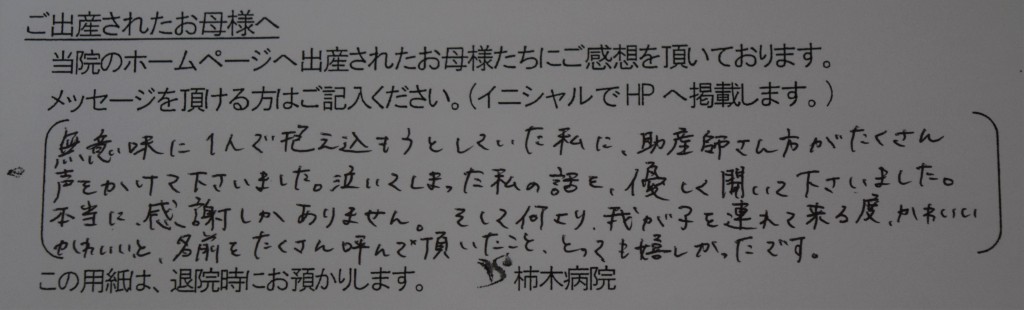 ご出産されたお母様へ
当院のホームページへ出産されたお母様たちにご感想を頂いております。
メッセージを頂ける方はご記入ください。(イニシャルでHPへ掲載します。)
無意味に1人で抱え込もうとしていた私に、助産師さん方がたくさん
声をかけて下さいました。泣いてしまった私の話を、優しく聞いて下さいました。
本当に、感謝しかありません。そして何より、我が子を連れて来る度、かわいい
かわいいと、名前をたくさん呼んで頂いたこと、とっても嬉しかったです。
この用紙は、退院時にお預かりします。 柿木病院